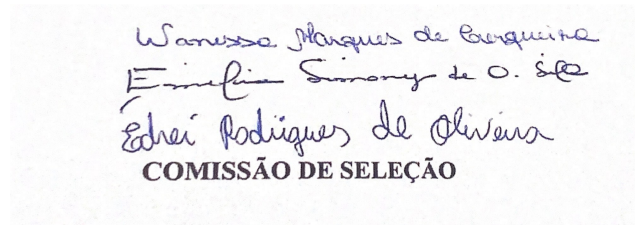 Wanessa Marques de Cerqueira
Emilia Simony de O. Silva
Ednei Rodrigues de Oliveira
COMISSÃO DE SELEÇÃO